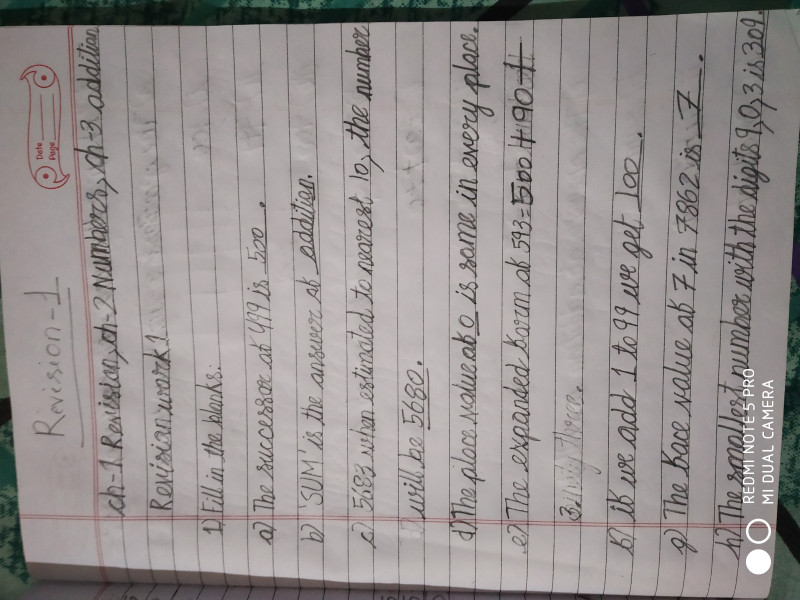 Date
Page
Revision-1
ch-1 Revision, ch-2 Numbers, ch-3 addition
Revision work 1
1) Fill in the blanks:
a) The successor of 499 is 500.
b) 'SUM' is the answer of addition.
c) 5683 when estimated to nearest 10, the number
will be 5680.
d) The place value of 0 is same in every place.
e) The expanded form of 593=500+90+
3.
f) if we add 1 to 99 we get 100.
g) The face value of 7 in 7862 is 7.
h) The smallest number with the digits 9,0,3 is 309.
REDMI NOTE 5 PRO
MI DUAL CAMERA